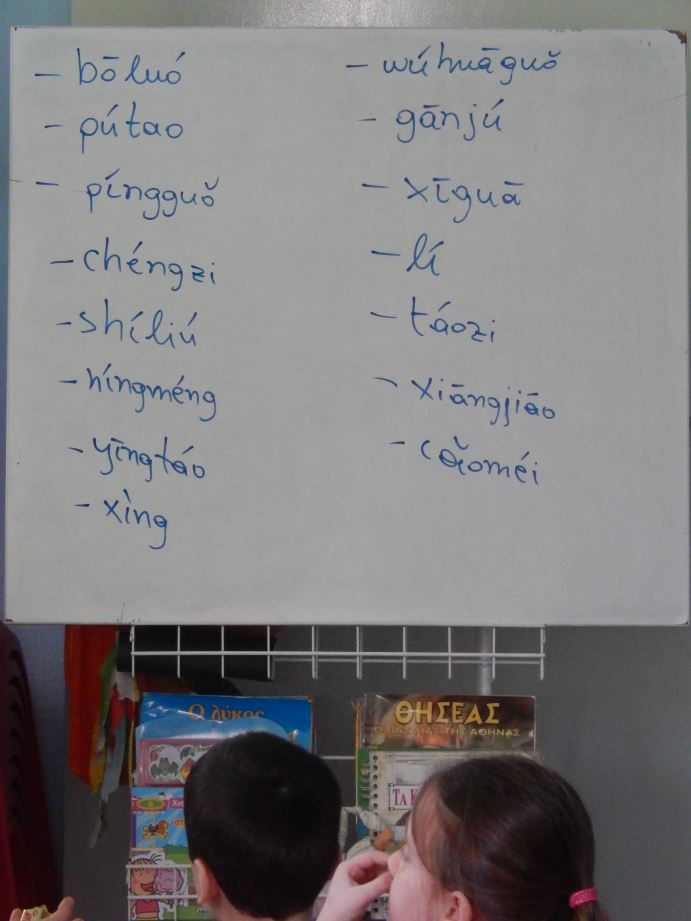 - bōluó
- pútao
- píngguǒ
- chéngzi
- shíliú
- níngméng
- yīngtáo
- xìng
- wúhuāguǒ
- gānjú
- xīguā
- lí
- táozi
- xiāngjiāo
- cǎoméi
Ο λύκος
ΘΗΣΕΑΣ
ΤΗΣ ΑΘΗΝΑΣ
ΤΑ